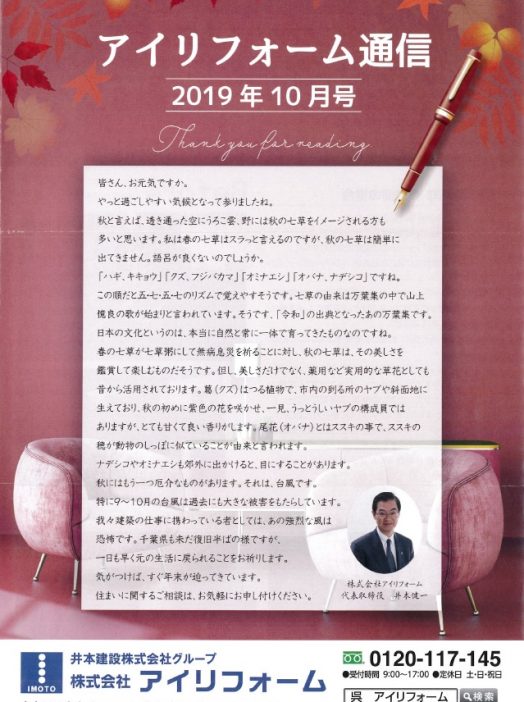 アイリフォーム通信
2019年10月号
Thank you for reading
皆さん、お元気ですか。
やっと過ごしやすい気候となって参りましたね。
秋と言えば、透き通った空にうろこ雲、野には秋の七草をイメージされる方も
多いと思います。私は春の七草はスラっと言えるのですが、秋の七草は簡単に
出てきません。語呂が良くないのでしょうか。
「ハギ、キキョウ」「クズ、フジバカマ」「オミナエシ」「オバナ、ナデシコ」ですね。
この順だと五・七・五・七のリズムで覚えやすそうです。七草の由来は万葉集の中で山上
憶良の歌が始まりと言われています。そうです、「令和」の出典となったあの万葉集です。
日本の文化というのは、本当に自然と常に一体で育ってきたものなのですね。
春の七草が七草粥にして無病息災を祈ることに対し、秋の七草は、その美しさを
鑑賞して楽しむものだそうです。但し、美しさだけでなく、薬用など実用的な草花としても
昔から活用されております。葛(クズ)はつる植物で、市内の到る所のヤブや斜面地に
生えており、秋の初めに紫色の花を咲かせ、一見、うっとうしいヤブの構成員では
ありますが、とても甘くて良い香りがします。尾花(オバナ)とはススキの事で、ススキの
穂が動物のしっぽに似ていることが由来と言われます。
ナデシコやオミナエシも郊外に出かけると、目にすることがあります。
秋にはもう一つ厄介なものがあります。それは、台風です。
特に9〜10月の台風は過去にも大きな被害をもたらしています。
我々建築の仕事に携わっている者としては、あの強烈な風は
恐怖です。千葉県も未だ復旧半ばの様ですが、
一日も早く元の生活に戻られることをお祈りします。
気がつけば、すぐ年末が迫ってきています。
住まいに関するご相談は、お気軽にお申し付けください。
株式会社アイリフォーム
代表取締役 井本健一
IMOTO
井本建設株式会社グループ
株式会社 アイリフォーム
0120-117-145
●受付時間 9:00〜17:00 ●定休日 土・日・祝日
呉 アイリフォーム 検索